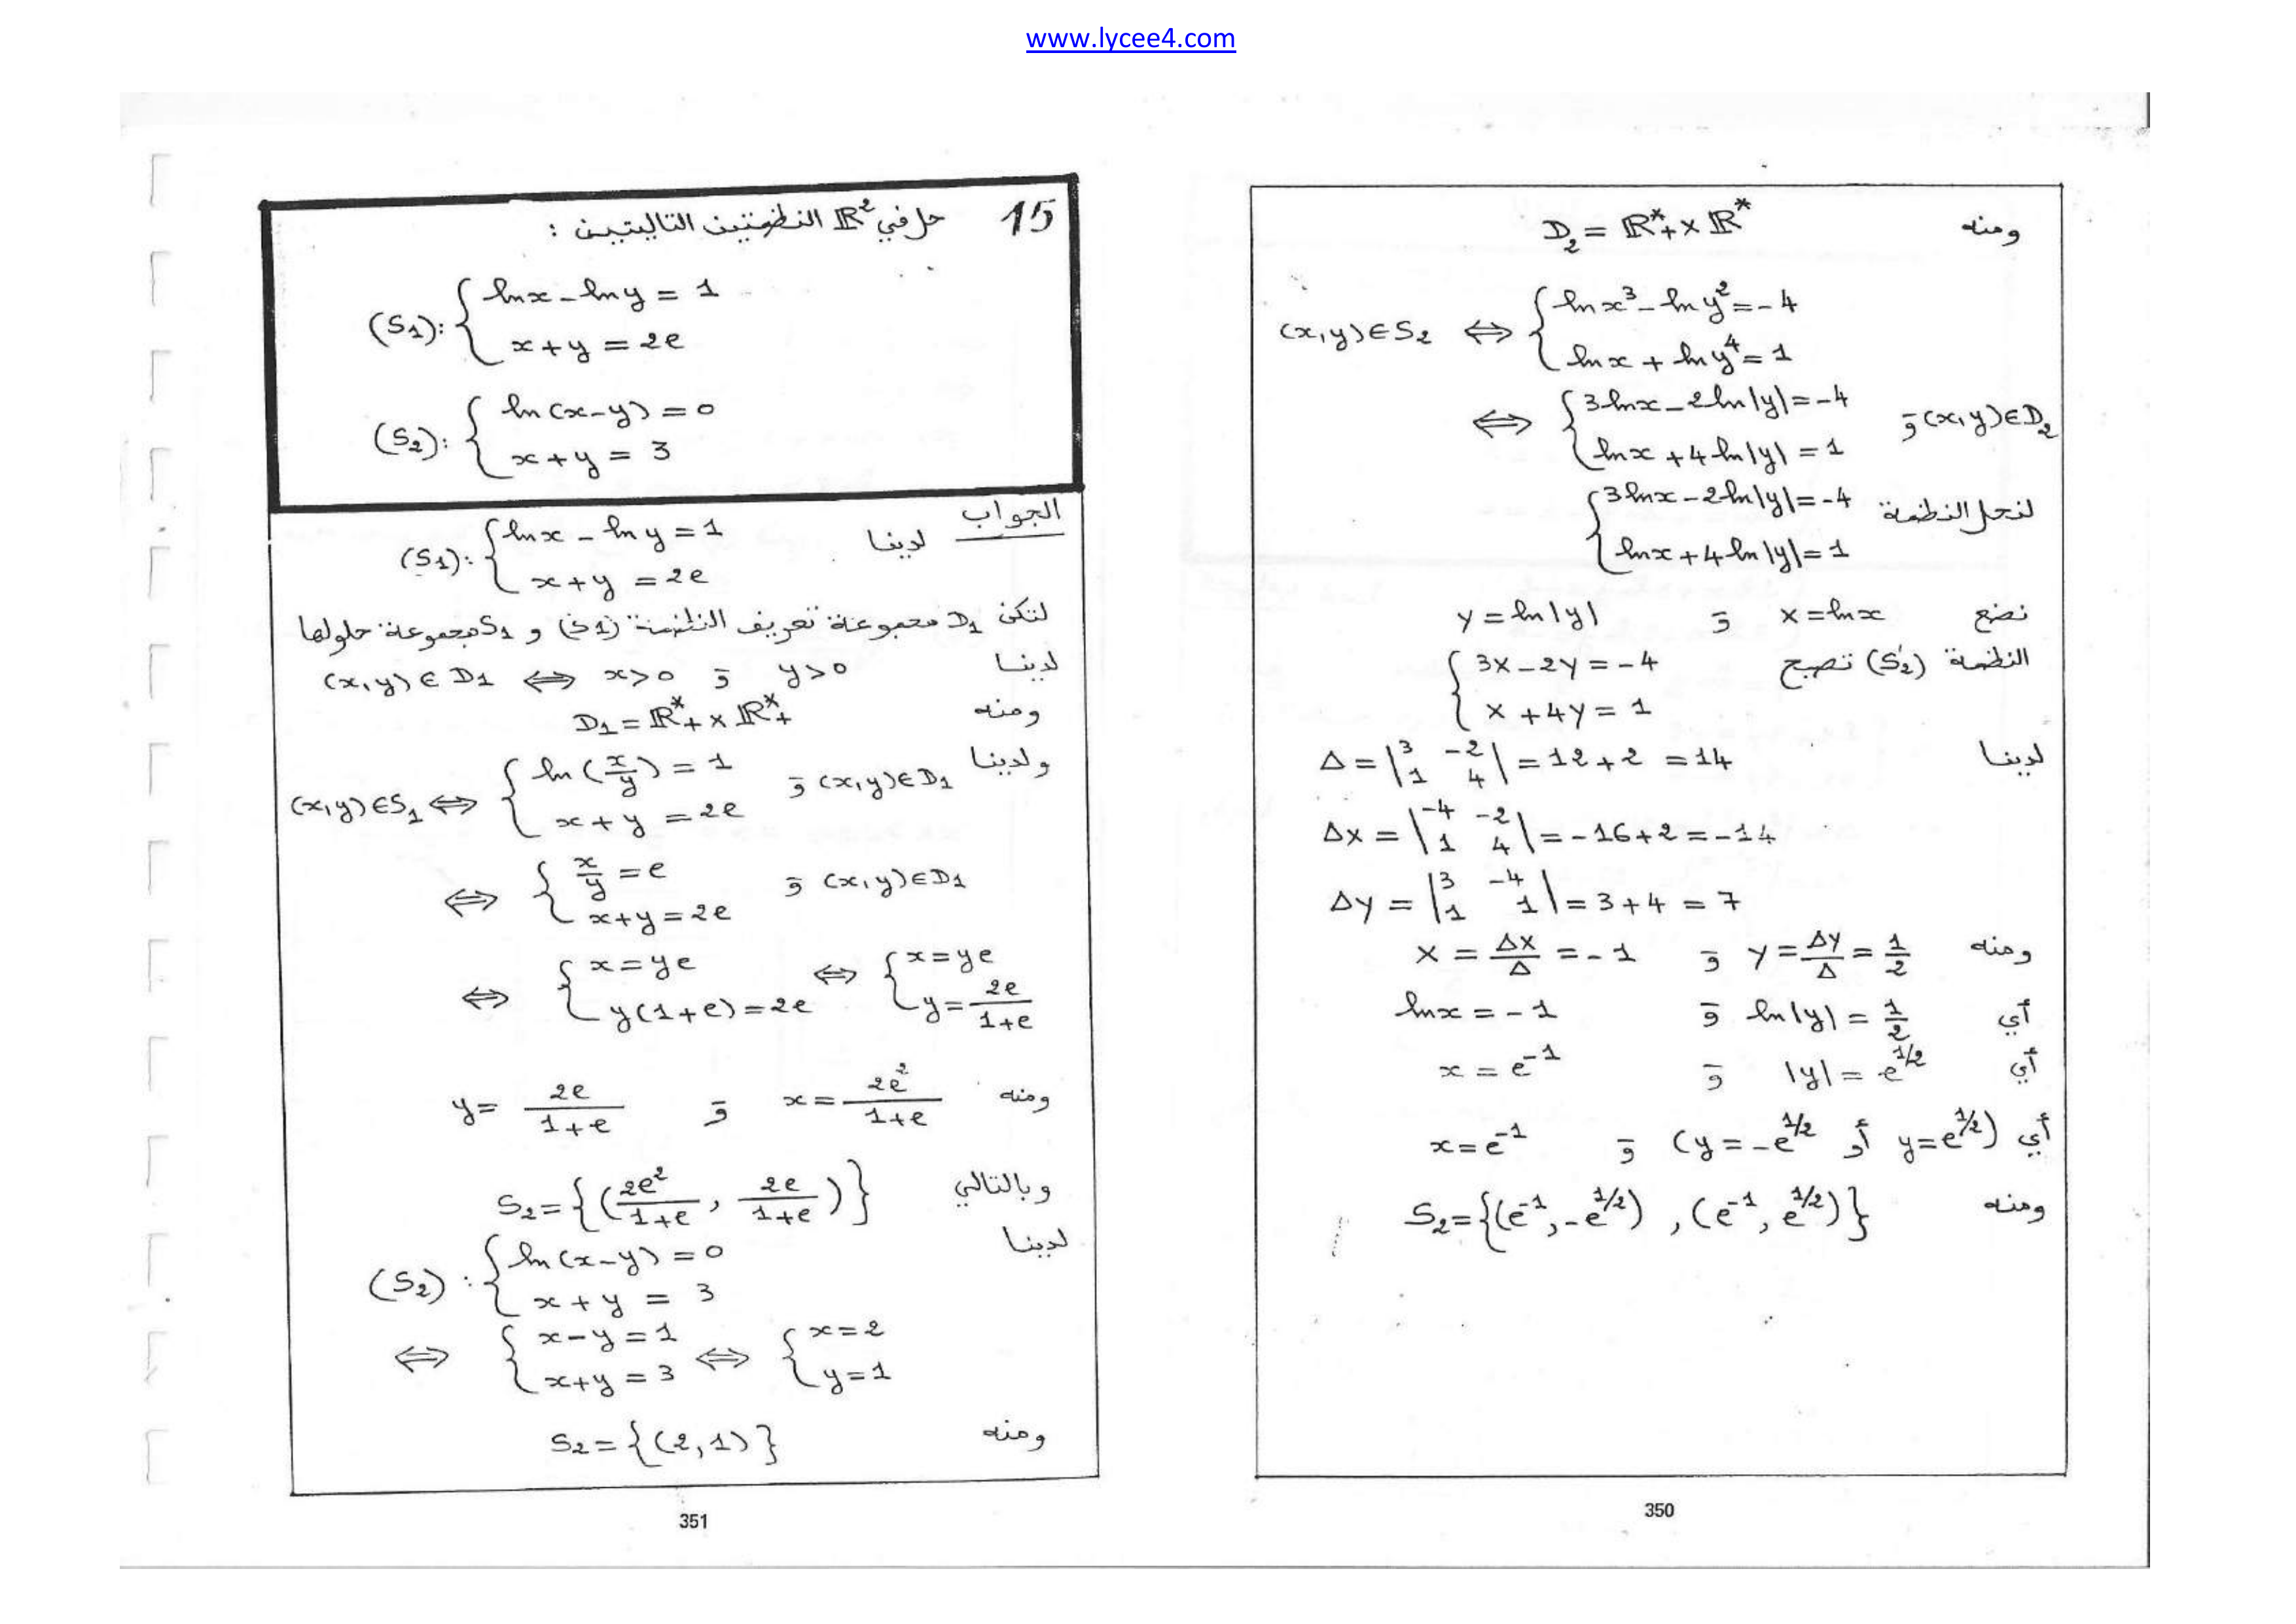 www.lycee4.com
ومنه D₂ = ℝ*₊ × ℝ*
(x,y)∈S₂ ⇔ { ln x³ - ln y² = -4
ln x + ln y⁴ = 1
⇔ { 3 ln x - 2 ln|y| = -4 و (x,y)∈D₂
ln x + 4 ln|y| = 1
لنحل النظمة { 3 ln x - 2 ln|y| = -4
ln x + 4 ln|y| = 1
نضع X = ln x و Y = ln|y|
النظمة (S'₂) تصبح { 3X - 2Y = -4
X + 4Y = 1
لدينا Δ = |3 -2; 1 4| = 12 + 2 = 14
ΔX = |-4 -2; 1 4| = -16 + 2 = -14
ΔY = |3 -4; 1 1| = 3 + 4 = 7
ومنه X = ΔX/Δ = -1 و Y = ΔY/Δ = 1/2
أي ln x = -1 و ln|y| = 1/2
أي x = e⁻¹ و |y| = e^{1/2}
أي x = e⁻¹ و (y = -e^{1/2} أو y = e^{1/2})
ومنه S₂ = {(e⁻¹, -e^{1/2}) , (e⁻¹, e^{1/2})}
350
15 حل في ℝ² النظمتين التاليتين :
(S₁): { ln x - ln y = 1
x + y = 2e
(S₂): { ln(x-y) = 0
x + y = 3
الجواب لدينا (S₁): { ln x - ln y = 1
x + y = 2e
لتكن D₁ مجموعة تعريف النظمة (S₁) و S₁ مجموعة حلولها
لدينا (x,y) ∈ D₁ ⇔ x>0 و y>0
ومنه D₁ = ℝ*₊ × ℝ*₊
ولدينا (x,y)∈S₁ ⇔ { ln(x/y) = 1 و (x,y)∈D₁
x + y = 2e
⇔ { x/y = e و (x,y)∈D₁
x+y = 2e
⇔ { x = ye ⇔ { x = ye
y(1+e) = 2e y = 2e/(1+e)
ومنه y = 2e/(1+e) و x = 2e²/(1+e)
وبالتالي S₂ = {(2e²/(1+e) , 2e/(1+e))}
لدينا (S₂) : { ln(x-y) = 0
x + y = 3
⇔ { x - y = 1 ⇔ { x = 2
x+y = 3 y = 1
ومنه S₂ = {(2,1)}
351